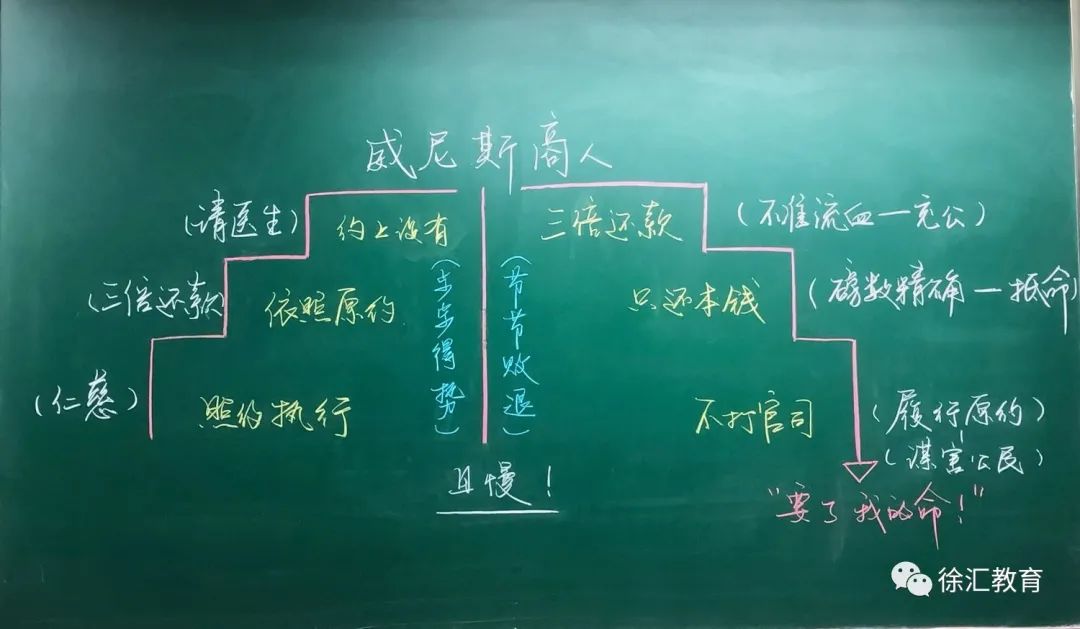 威尼斯商人
(请医生)
约上没有
(三倍还款)
依照原约
(仁慈)
照约执行
(步步得势)
(节节败退)
三倍还款
(不准流血一充公)
只还本钱
(磅数精确一抵命)
不打官司
(履行原约)
(谋害公民)
"要了我的命!"
且慢!
徐汇教育